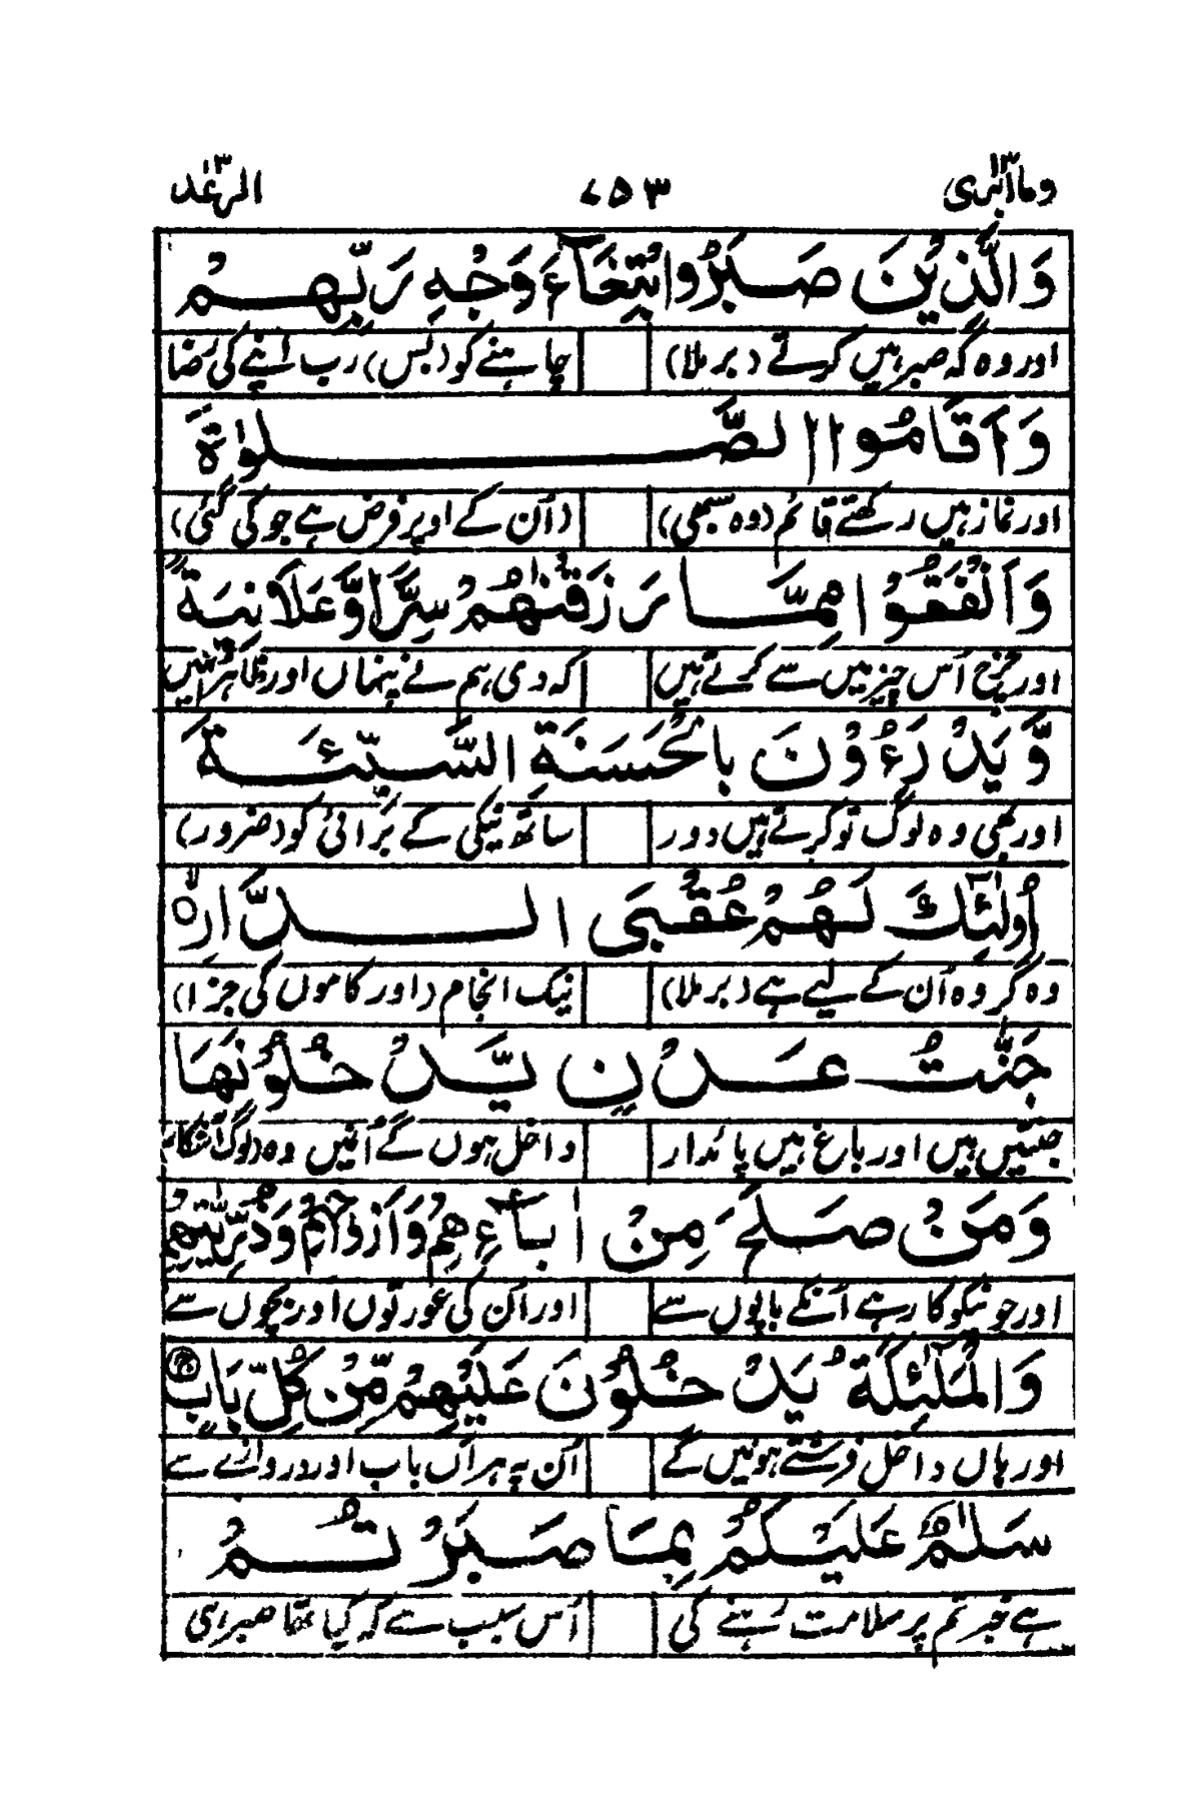 وما ابرئ ١٣ ٧٥٣ الرعد ١٣
وَالَّذِيْنَ صَبَرُوا ابْتِغَآءَ وَجْهِ رَبِّهِمْ
اور وہ کہ صبر ہیں کرتے (برملا) چاہنے کو (بس) رب اپنے کی رضا
وَاَقَامُوا الصَّلٰوةَ
اور نماز ہیں رکھتے قائم (وہ سبھی) (اُن کے اوپر فرض ہے جو کی گئی)
وَاَنْفَقُوْا مِمَّا رَزَقْنٰهُمْ سِرًّا وَّعَلَانِيَةً
اور خرچ اُس چیز میں سے کرتے ہیں کہ دی ہم نے پنہاں اور ظاہر انہیں
وَّيَدْرَءُوْنَ بِالْحَسَنَةِ السَّيِّئَةَ
اور بھی وہ لوگ تو کرتے ہیں دور ساتھ نیکی کے بُرائی کو (ضرور)
اُولٰٓئِكَ لَهُمْ عُقْبَى الدَّارِ ۙ
وہ گروہ اُن کے لیے ہے (برملا) نیک انجام (اور کاموں کی جزا)
جَنّٰتُ عَدْنٍ يَّدْخُلُوْنَهَا
جنتیں ہیں اور باغ ہیں پائدار داخل ہوں گے اُنیں وہ (لوگ
وَمَنْ صَلَحَ مِنْ اٰبَآءِهِمْ وَاَزْوَاجِهِمْ وَذُرِّيّٰتِهِمْ
اور جو نیکوکار رہے اُنکے باپوں سے اور اُن کی عورتوں اور بچوں سے
وَالْمَلٰٓئِكَةُ يَدْخُلُوْنَ عَلَيْهِمْ مِّنْ كُلِّ بَابٍ
اور ہاں داخل فرشتے ہونیں گے اُن پہ ہر اُں باب اور دروازے سے
سَلٰمٌ عَلَيْكُمْ بِمَا صَبَرْتُمْ
ہے خبر تم پر سلامت رہنے کی اُس سبب سے کہ کیا تھا صبر ہی